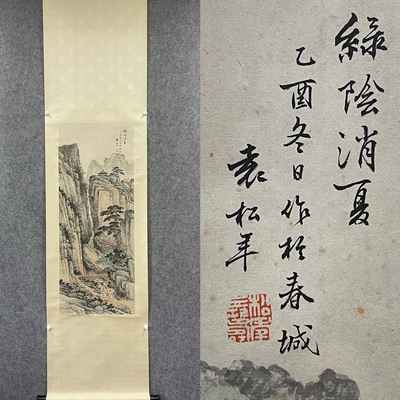 綠陰消夏
乙酉冬日作於春城
袁松年